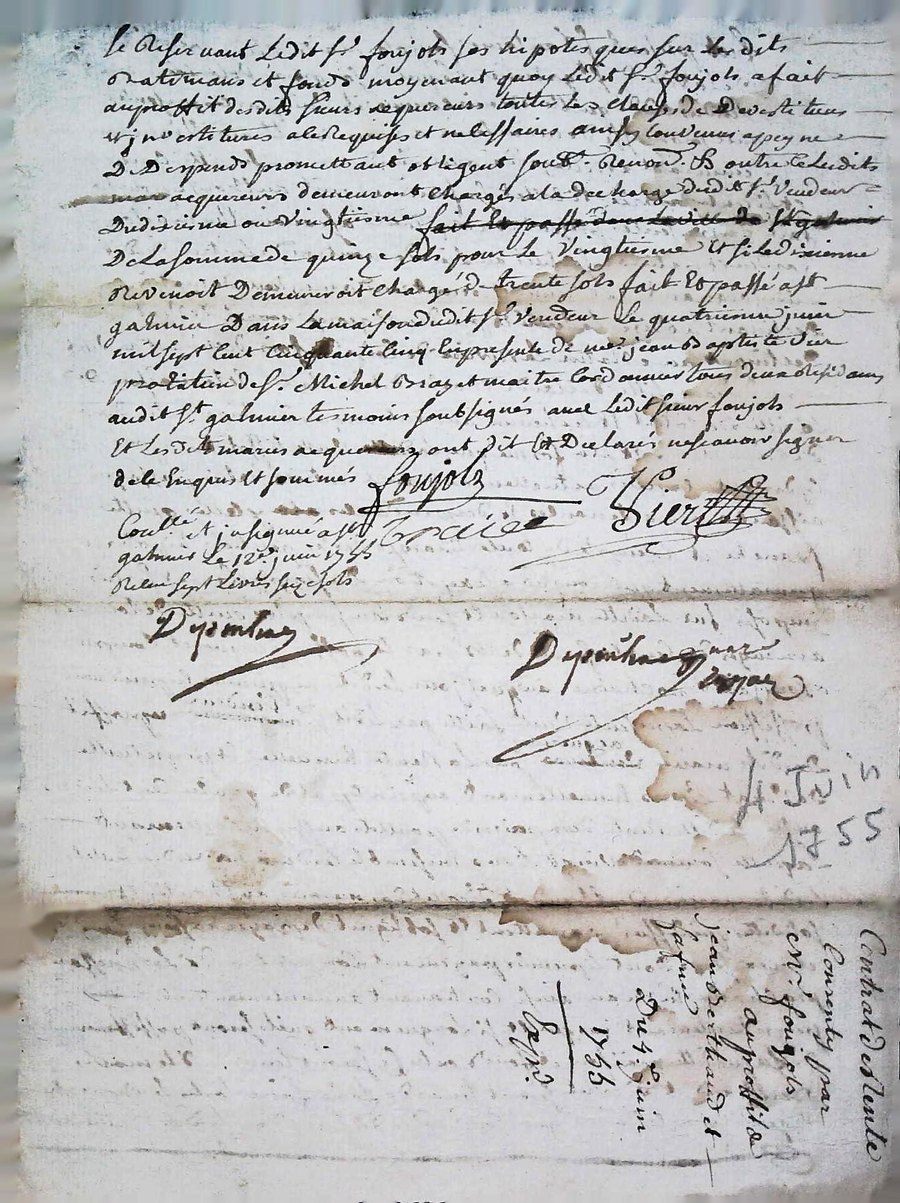 se Reservant Ledit Sr. foujols ses hipotesques sur Lesdits
Batimans et fonds moymant quoy Ledit Sr. foujols a fait
auproffit desdits sieurs acquereurs toutes les clauses de Devestitures
et jnvestitures a ce Requises et nesessaires ainsy convenu a peyne
D Despends promettant obligent soubt. Renond. & outre ce Lesdits
acquereurs demeuront chargés a la decharge dudit Sr. Vendeur
Du dixisme ou Vingtiesme fait Et passé dans la ville de St galmier
De La somme de quinze sols pour le Vingtiesme Et si Le dixiesme
Revenoit Demeureroit chargé d trente sols fait Et passé a st
galmier Dans La maison dudit Sr. Vendeur Le quatriesme juin
mil sept Cent Cinquante Cinq En presente de me jean Baptiste Vier
praticien de Sr. Michel maitre Cordonnier tous deux Residans
audit St. galmier tesmoins soubsignés avec Ledit sieur foujols
Et Les dits mariés acquereurs ont dit Et Declarés ne scavoir signer
de ce Enquis Et sommés foujols
Vier
Conllé et jnsignué a st
galmier Le 12e. juin 1755
Relu sept Livres seize sols
4 Juin
1755
Contrat de Vente
Consenty par
Mr. foujols
au proffit de
jean Berthaud et
sa fme
Du 4e. juin
1755
Expd.